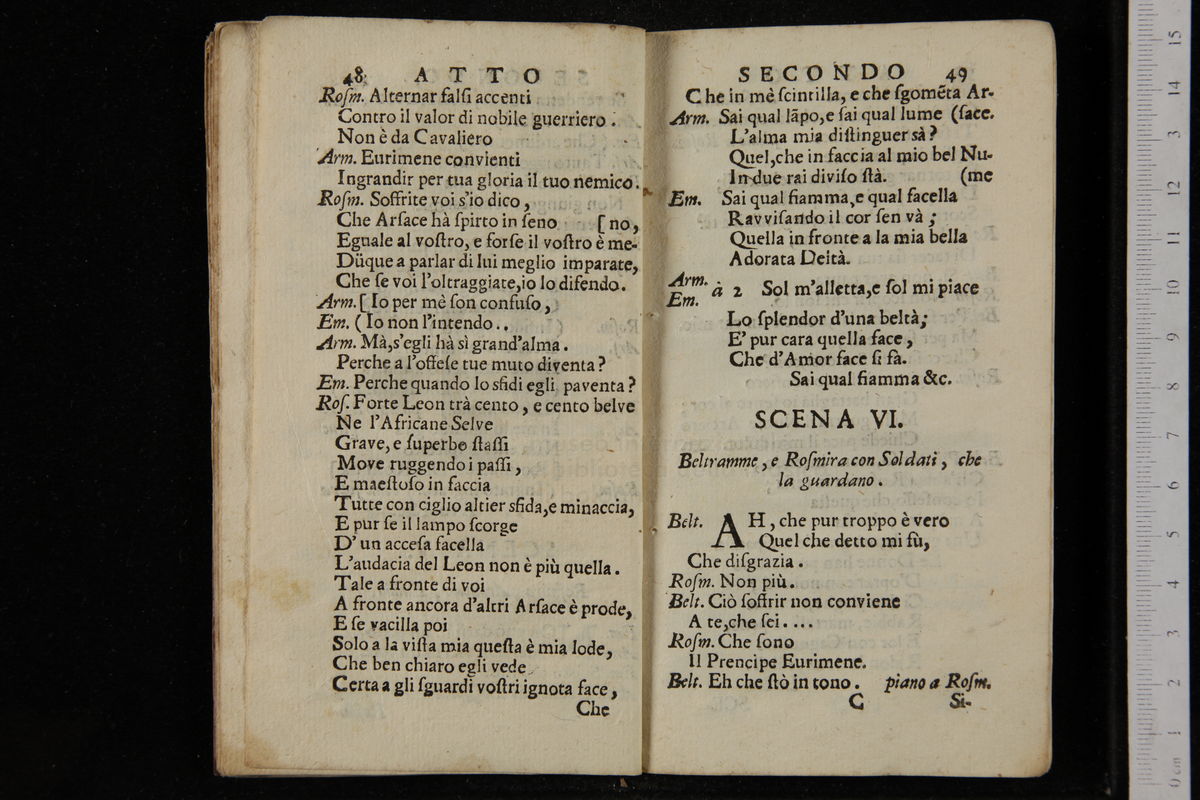 48 ATTO
Roſm. Alternar falſi accenti
Contro il valor di nobile guerriero.
Non è da Cavaliero
Arm. Eurimene convienti
Ingrandir per tua gloria il tuo nemico.
Roſm. Soffrite voi s'io dico,
Che Arſace hà ſpirto in ſeno [no,
Eguale al voſtro, e forſe il voſtro è me-
Dũque a parlar di lui meglio imparate,
Che ſe voi l'oltraggiate,io lo difendo.
Arm. [Io per mè ſon confuſo,
Em. (Io non l'intendo..
Arm. Mà,s'egli hà sì grand'alma.
Perche a l'offeſe tue muto diventa?
Em. Perche quando lo sfidi egli paventa?
Roſ. Forte Leon trà cento, e cento belve
Ne l'Africane Selve
Grave, e ſuperbo ſtaſſi
Move ruggendo i paſſi,
E maeſtoſo in faccia
Tutte con ciglio altier sfida,e minaccia,
E pur ſe il lampo ſcorge
D'un acceſa facella
L'audacia del Leon non è più quella.
Tale a fronte di voi
A fronte ancora d'altri Arſace è prode,
E ſe vacilla poi
Solo a la viſta mia queſta è mia lode,
Che ben chiaro egli vede
Certa a gli ſguardi voſtri ignota face,
Che
SECONDO 49
Che in mè ſcintilla, e che ſgomẽta Ar-
Arm. Sai qual lãpo,e ſai qual lume (ſace.
L'alma mia diſtinguer sà?
Quel,che in faccia al mio bel Nu-
In due rai diviſo ſtà. (me
Em. Sai qual fiamma,e qual facella
Ravviſando il cor ſen và;
Quella in fronte a la mia bella
Adorata Deità.
Arm.
Em. à 2 Sol m'alletta,e ſol mi piace
Lo ſplendor d'una beltà;
E' pur cara quella face,
Che d'Amor face ſi fà.
Sai qual fiamma &c.
SCENA VI.
Beltramme, e Roſmira con Soldati, che
la guardano.
Belt. AH, che pur troppo è vero
Quel che detto mi fù,
Che diſgrazia.
Roſm. Non più.
Belt. Ciò ſoffrir non conviene
A te,che ſei....
Roſm. Che ſono
Il Prencipe Eurimene.
Belt. Eh che ſtò in tono. piano a Roſm.
C Si-